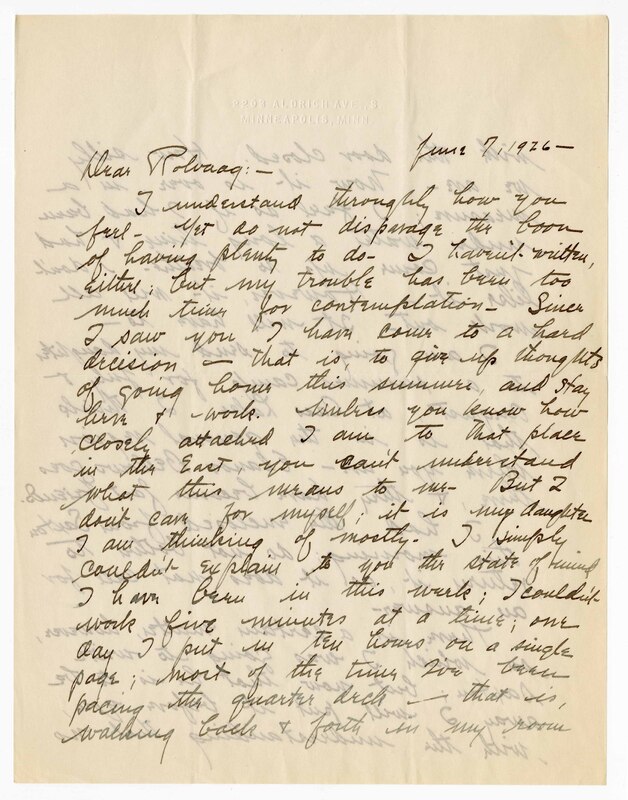 2203 ALDRICH AVE., S
MINNEAPOLIS, MINN.
June 7, 1926 —
Dear Rolvaag: —
I understand throughly how you
feel - Yet do not disparage the boon
of having plenty to do - I haven't written,
either; but my trouble has been too
much time for contemplation - Since
I saw you I have come to a hard
decision — that is, to give up thoughts
of going home this summer, and stay
here & work. Unless you know how
closely attached I am to that place
in the East, you can't understand
what this means to me - But I
don't care for myself; it is my daughter
I am thinking of mostly. I simply
couldn't explain to you the state of mind
I have been in this week; I couldn't
work five minutes at a time; one
day I put in ten hours on a single
page; most of the time I've been
pacing the quarter deck — that is,
walking back & forth in my room